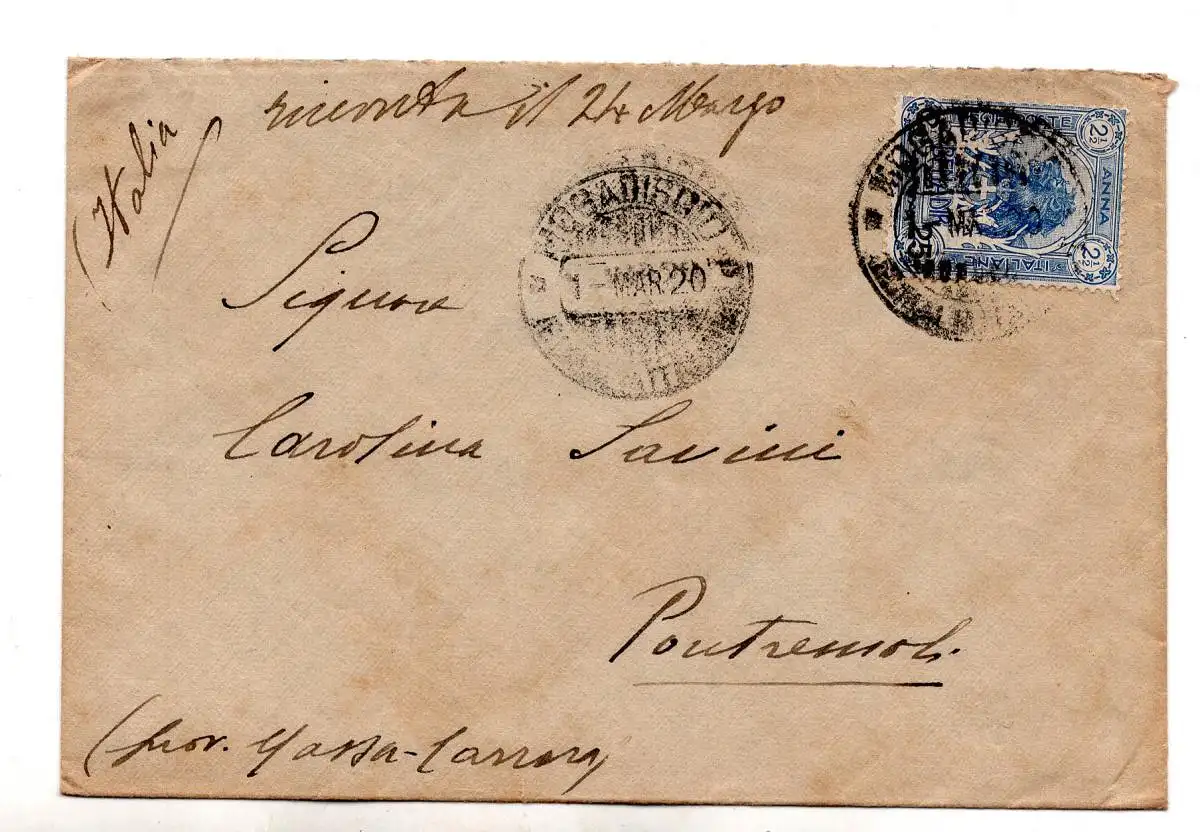 il 24 Marzo
(Italia)
MOGADISCIO
1-MAR.20
POSTE
ITALIANE
ANNA
2½
2½
25
Signora
Carolina Savini
Pontremoli.
(prov. Massa-Carrara)